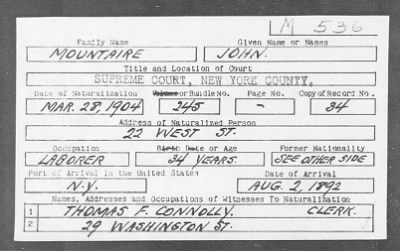 LM 536
Family Name Given Name or Names
MOUNTAIRE JOHN.
Title and Location of Court
SUPREME COURT, NEW YORK COUNTY,
Date of Naturalization Volume or Bundle No. Page No. Copy of Record No.
MAR. 28, 1904 245 - 34
Address of Naturalized Person
22 WEST ST.
Occupation Birth Date or Age Former Nationality
LABORER 34 YEARS SEE OTHER SIDE
Port of Arrival in the United States Date of Arrival
N.Y. AUG. 2, 1892
Names, Addresses and Occupations of Witnesses To Naturalization
1 THOMAS F. CONNOLLY. CLERK.
2 29 WASHINGTON ST.